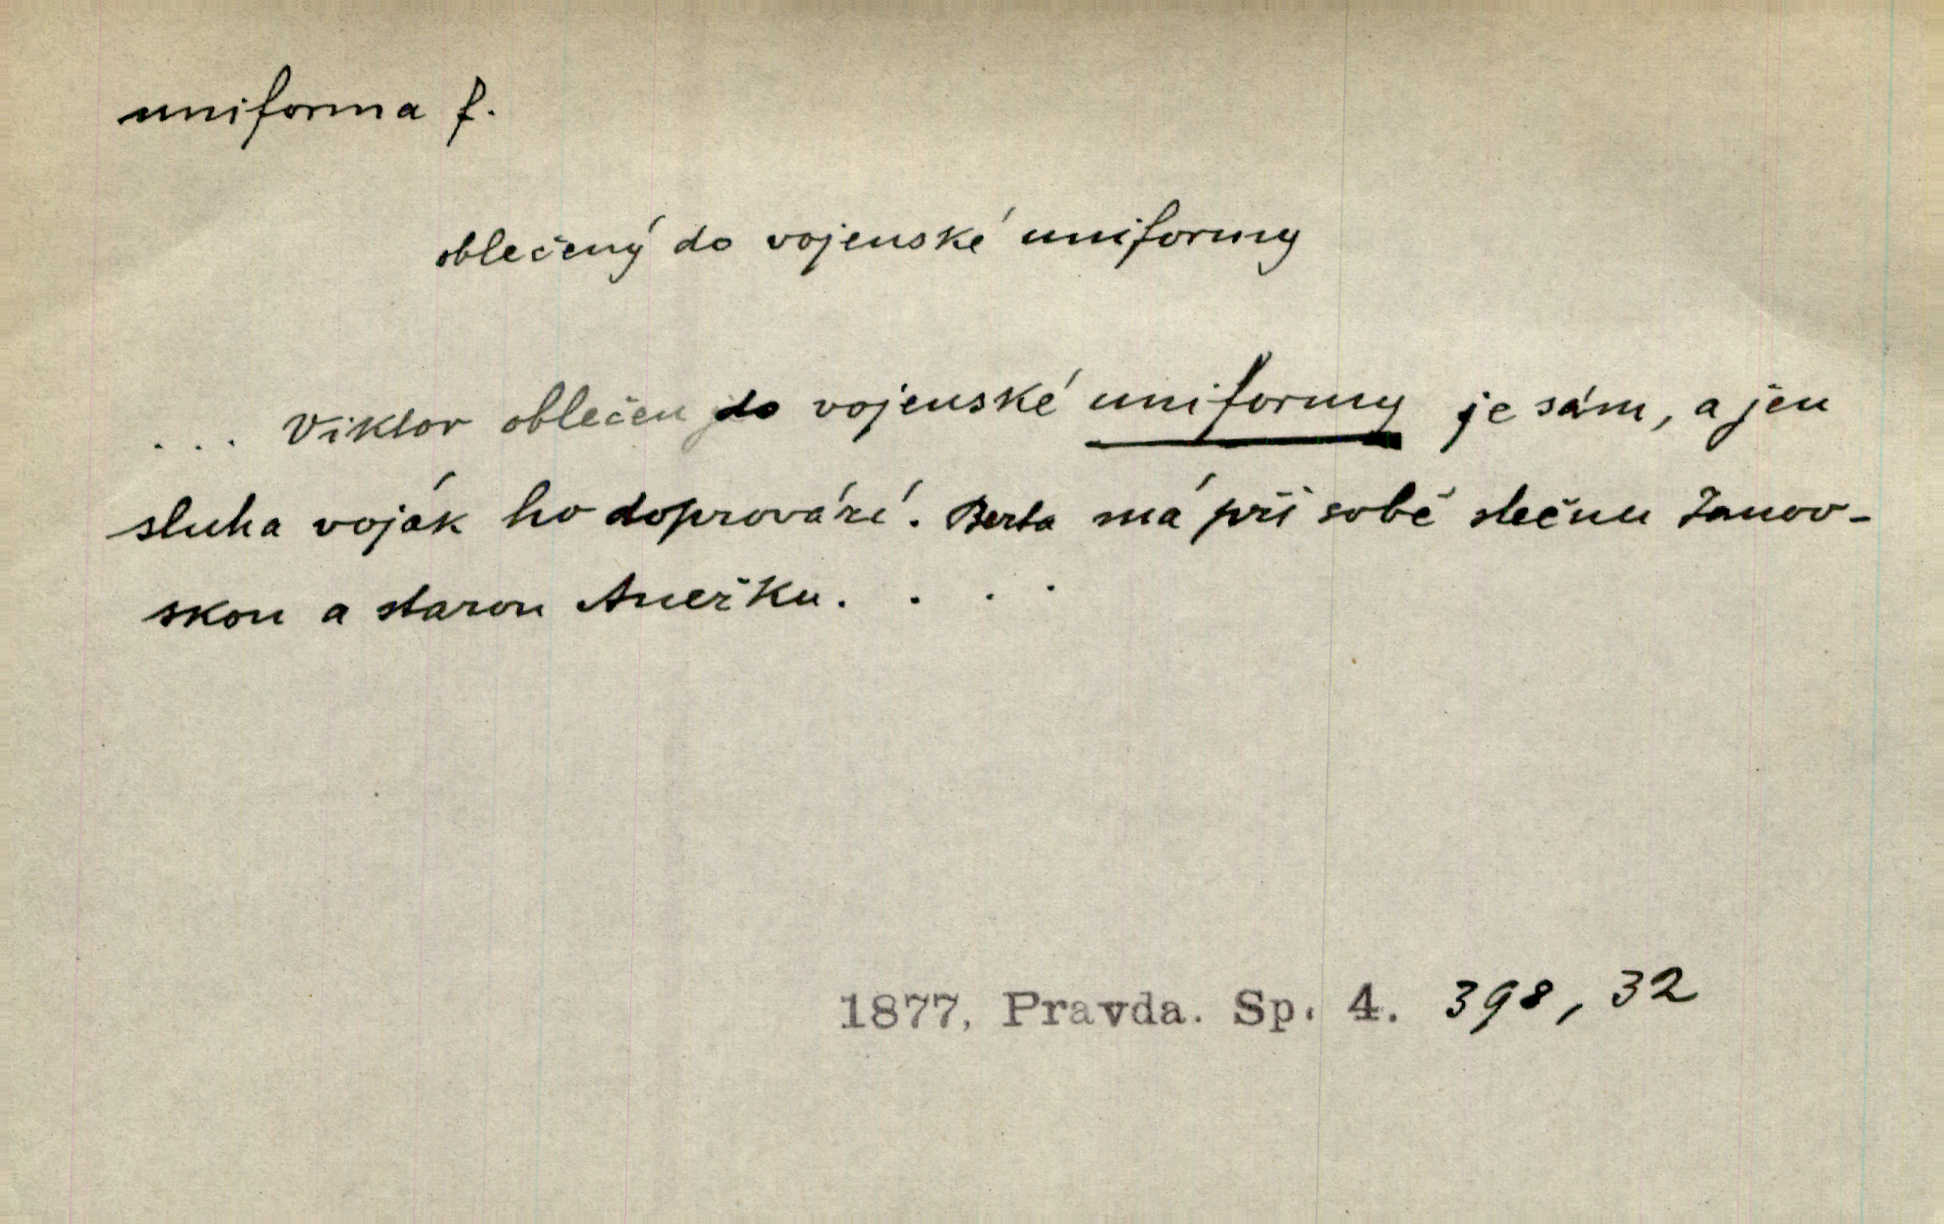 uniforma f.
oblečený do vojenské uniformy
... Viktor oblečen do vojenské uniformy je sám, a jen
sluha voják ho doprovází. Berta má při sobě slečnu Janov-
skou a starou Anežku. . . .
1877, Pravda. Sp. 4. 398, 32